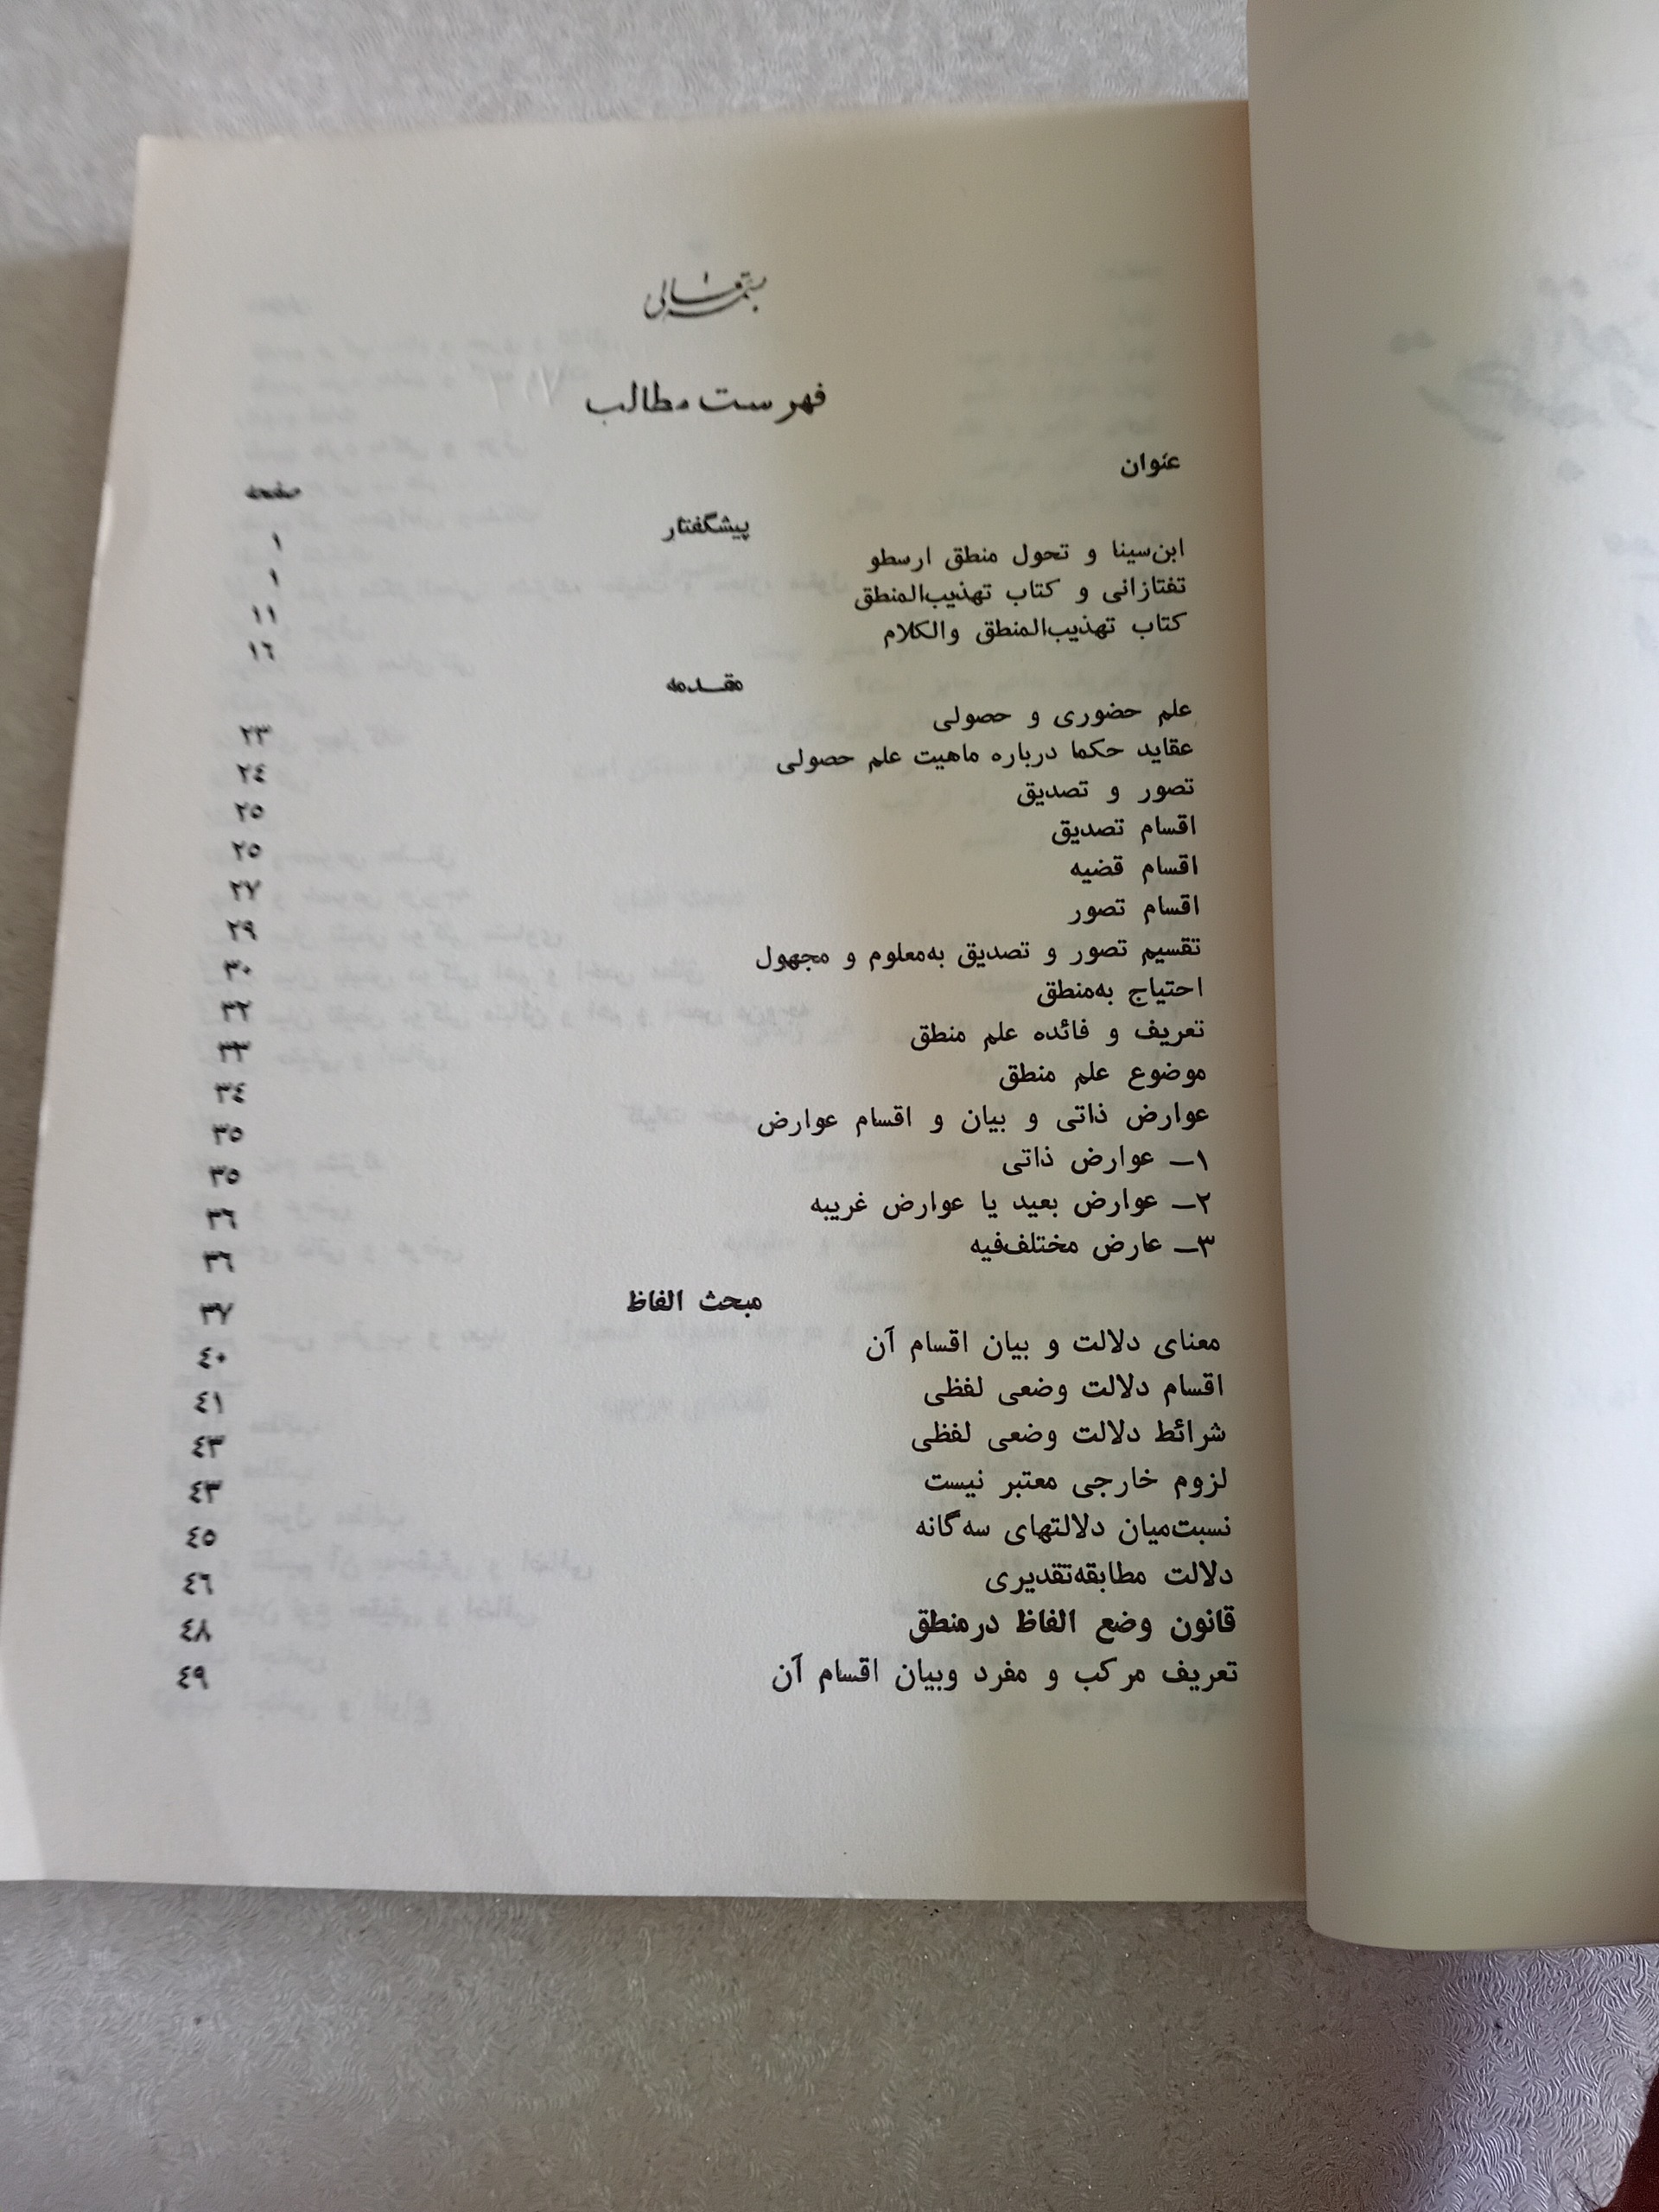 بسمه تعالی
فهرست مطالب
عنوان صفحه
پیشگفتار ۱
ابن‌سینا و تحول منطق ارسطو ۱
تفتازانی و کتاب تهذیب‌المنطق ۱۱
کتاب تهذیب‌المنطق والکلام ۱٦
مقدمه
علم حضوری و حصولی ۲۳
عقاید حکما درباره ماهیت علم حصولی ۲٤
تصور و تصدیق ۲٥
اقسام تصدیق ۲٥
اقسام قضیه ۲۷
اقسام تصور ۲۹
تقسیم تصور و تصدیق به‌معلوم و مجهول ۳۰
احتیاج به‌منطق ۳۲
تعریف و فائده علم منطق ۳۳
موضوع علم منطق ۳٤
عوارض ذاتی و بیان و اقسام عوارض ۳٥
۱ــ عوارض ذاتی ۳٥
۲ــ عوارض بعید یا عوارض غریبه ۳٦
۳ــ عارض مختلف‌فیه ۳٦
مبحث الفاظ ۳۷
معنای دلالت و بیان اقسام آن ٤۰
اقسام دلالت وضعی لفظی ٤۱
شرائط دلالت وضعی لفظی ٤۳
لزوم خارجی معتبر نیست ٤۳
نسبت‌میان دلالتهای سه‌گانه ٤٥
دلالت مطابقه‌تقدیری ٤٦
قانون وضع الفاظ در‌منطق ٤۸
تعریف مرکب و مفرد وبیان اقسام آن ٤۹